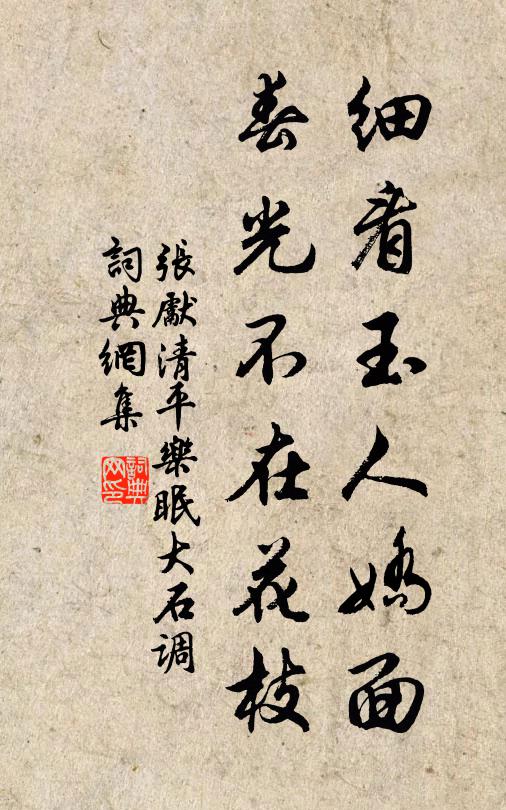 细看玉人嬌面
春光不在花枝
張獻清平樂眠大石调
詞典網集
詞典網印